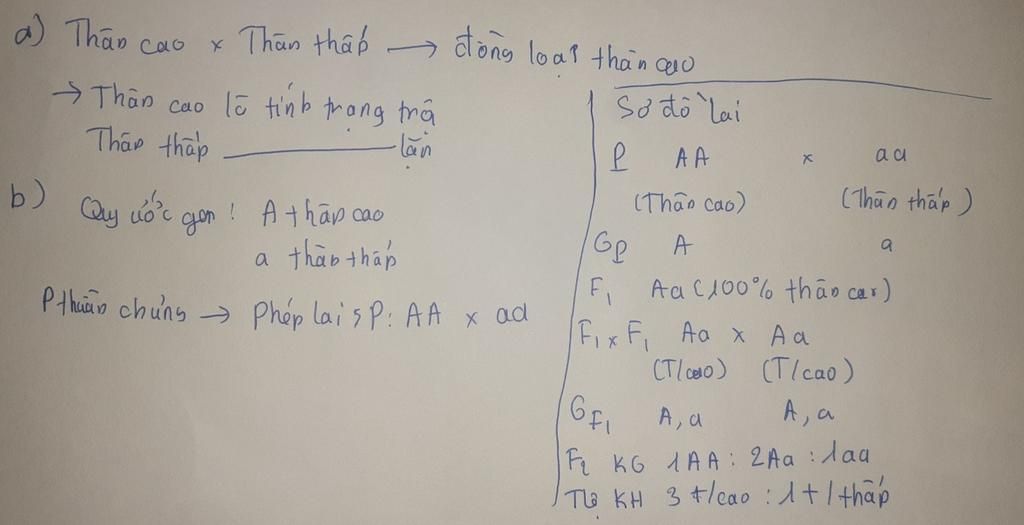 a) Thân cao x Thân thấp → đồng loạt thân cao
→ Thân cao là tính trạng trội
Thân thấp ——— lặn
b) Quy ước gen: A thân cao
a thân thấp
P thuần chủng → Phép lai P: AA x aa
Sơ đồ lai
P AA x aa
(Thân cao) (Thân thấp)
GP A a
F1 Aa (100% thân cao)
F1 x F1 Aa x Aa
(T/cao) (T/cao)
GF1 A, a A, a
F2 KG 1AA : 2Aa : 1aa
KH 3 t/cao : 1 t/thấp